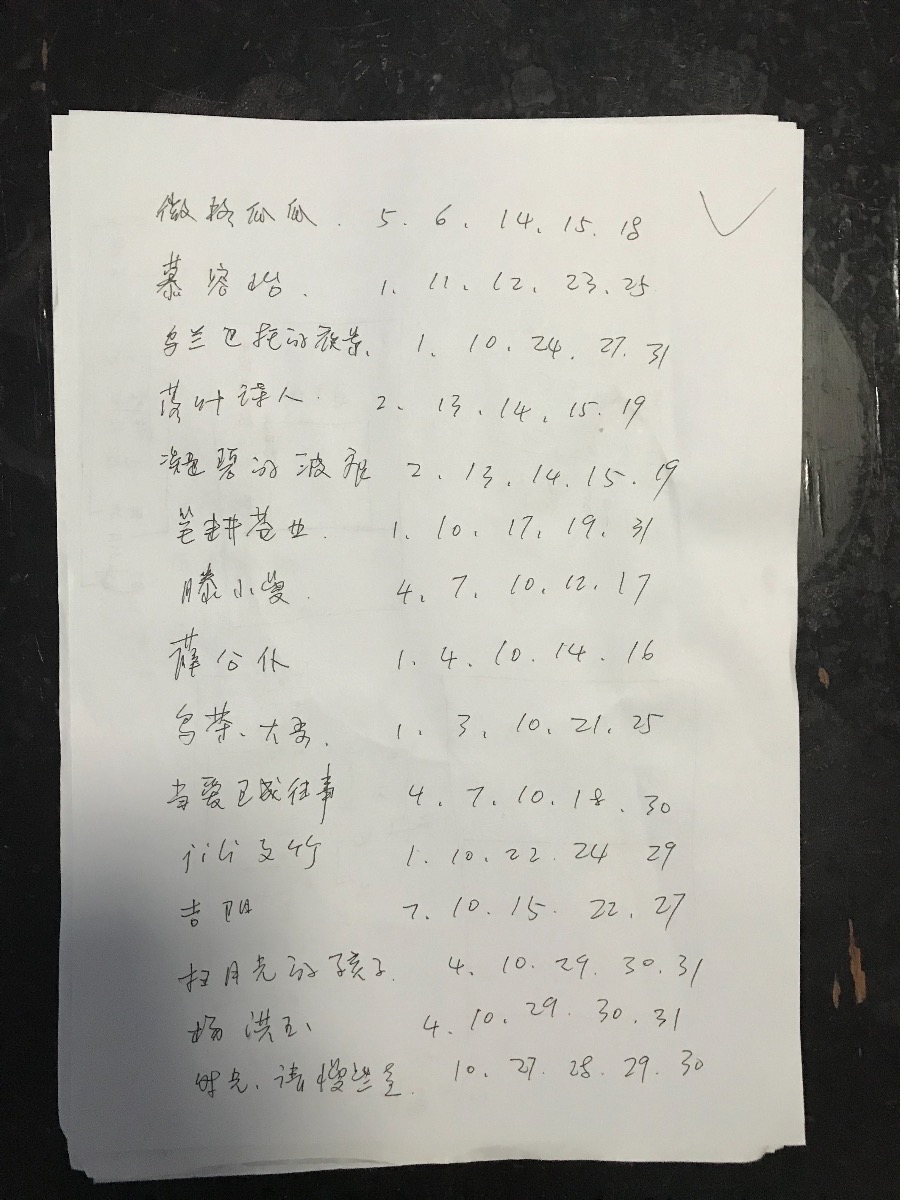 微格瓜瓜. 5. 6. 14. 15. 18
慕容怡. 1. 11. 12. 23. 25
乌兰巴托的夜景. 1. 10. 24. 27. 31
荷叶诗人. 2. 13. 14. 15. 19
凝碧的波痕 2. 13. 14. 15. 19
笔耕苍业. 1. 10. 17. 19. 31
滕小嫂. 4. 7. 10. 12. 17
薛公仆 1. 4. 10. 14. 16
乌荣、大秀. 1. 3. 10. 21. 25
当爱已成往事 4. 7. 10. 18. 30
文竹 1. 10. 22. 24 29
吉阳 7. 10. 15. 22. 27
扫月光的孩子. 4. 10. 29. 30. 31
杨洪玉 4. 10. 29. 30. 31
时光、请慢些走. 10. 27. 28. 29. 30